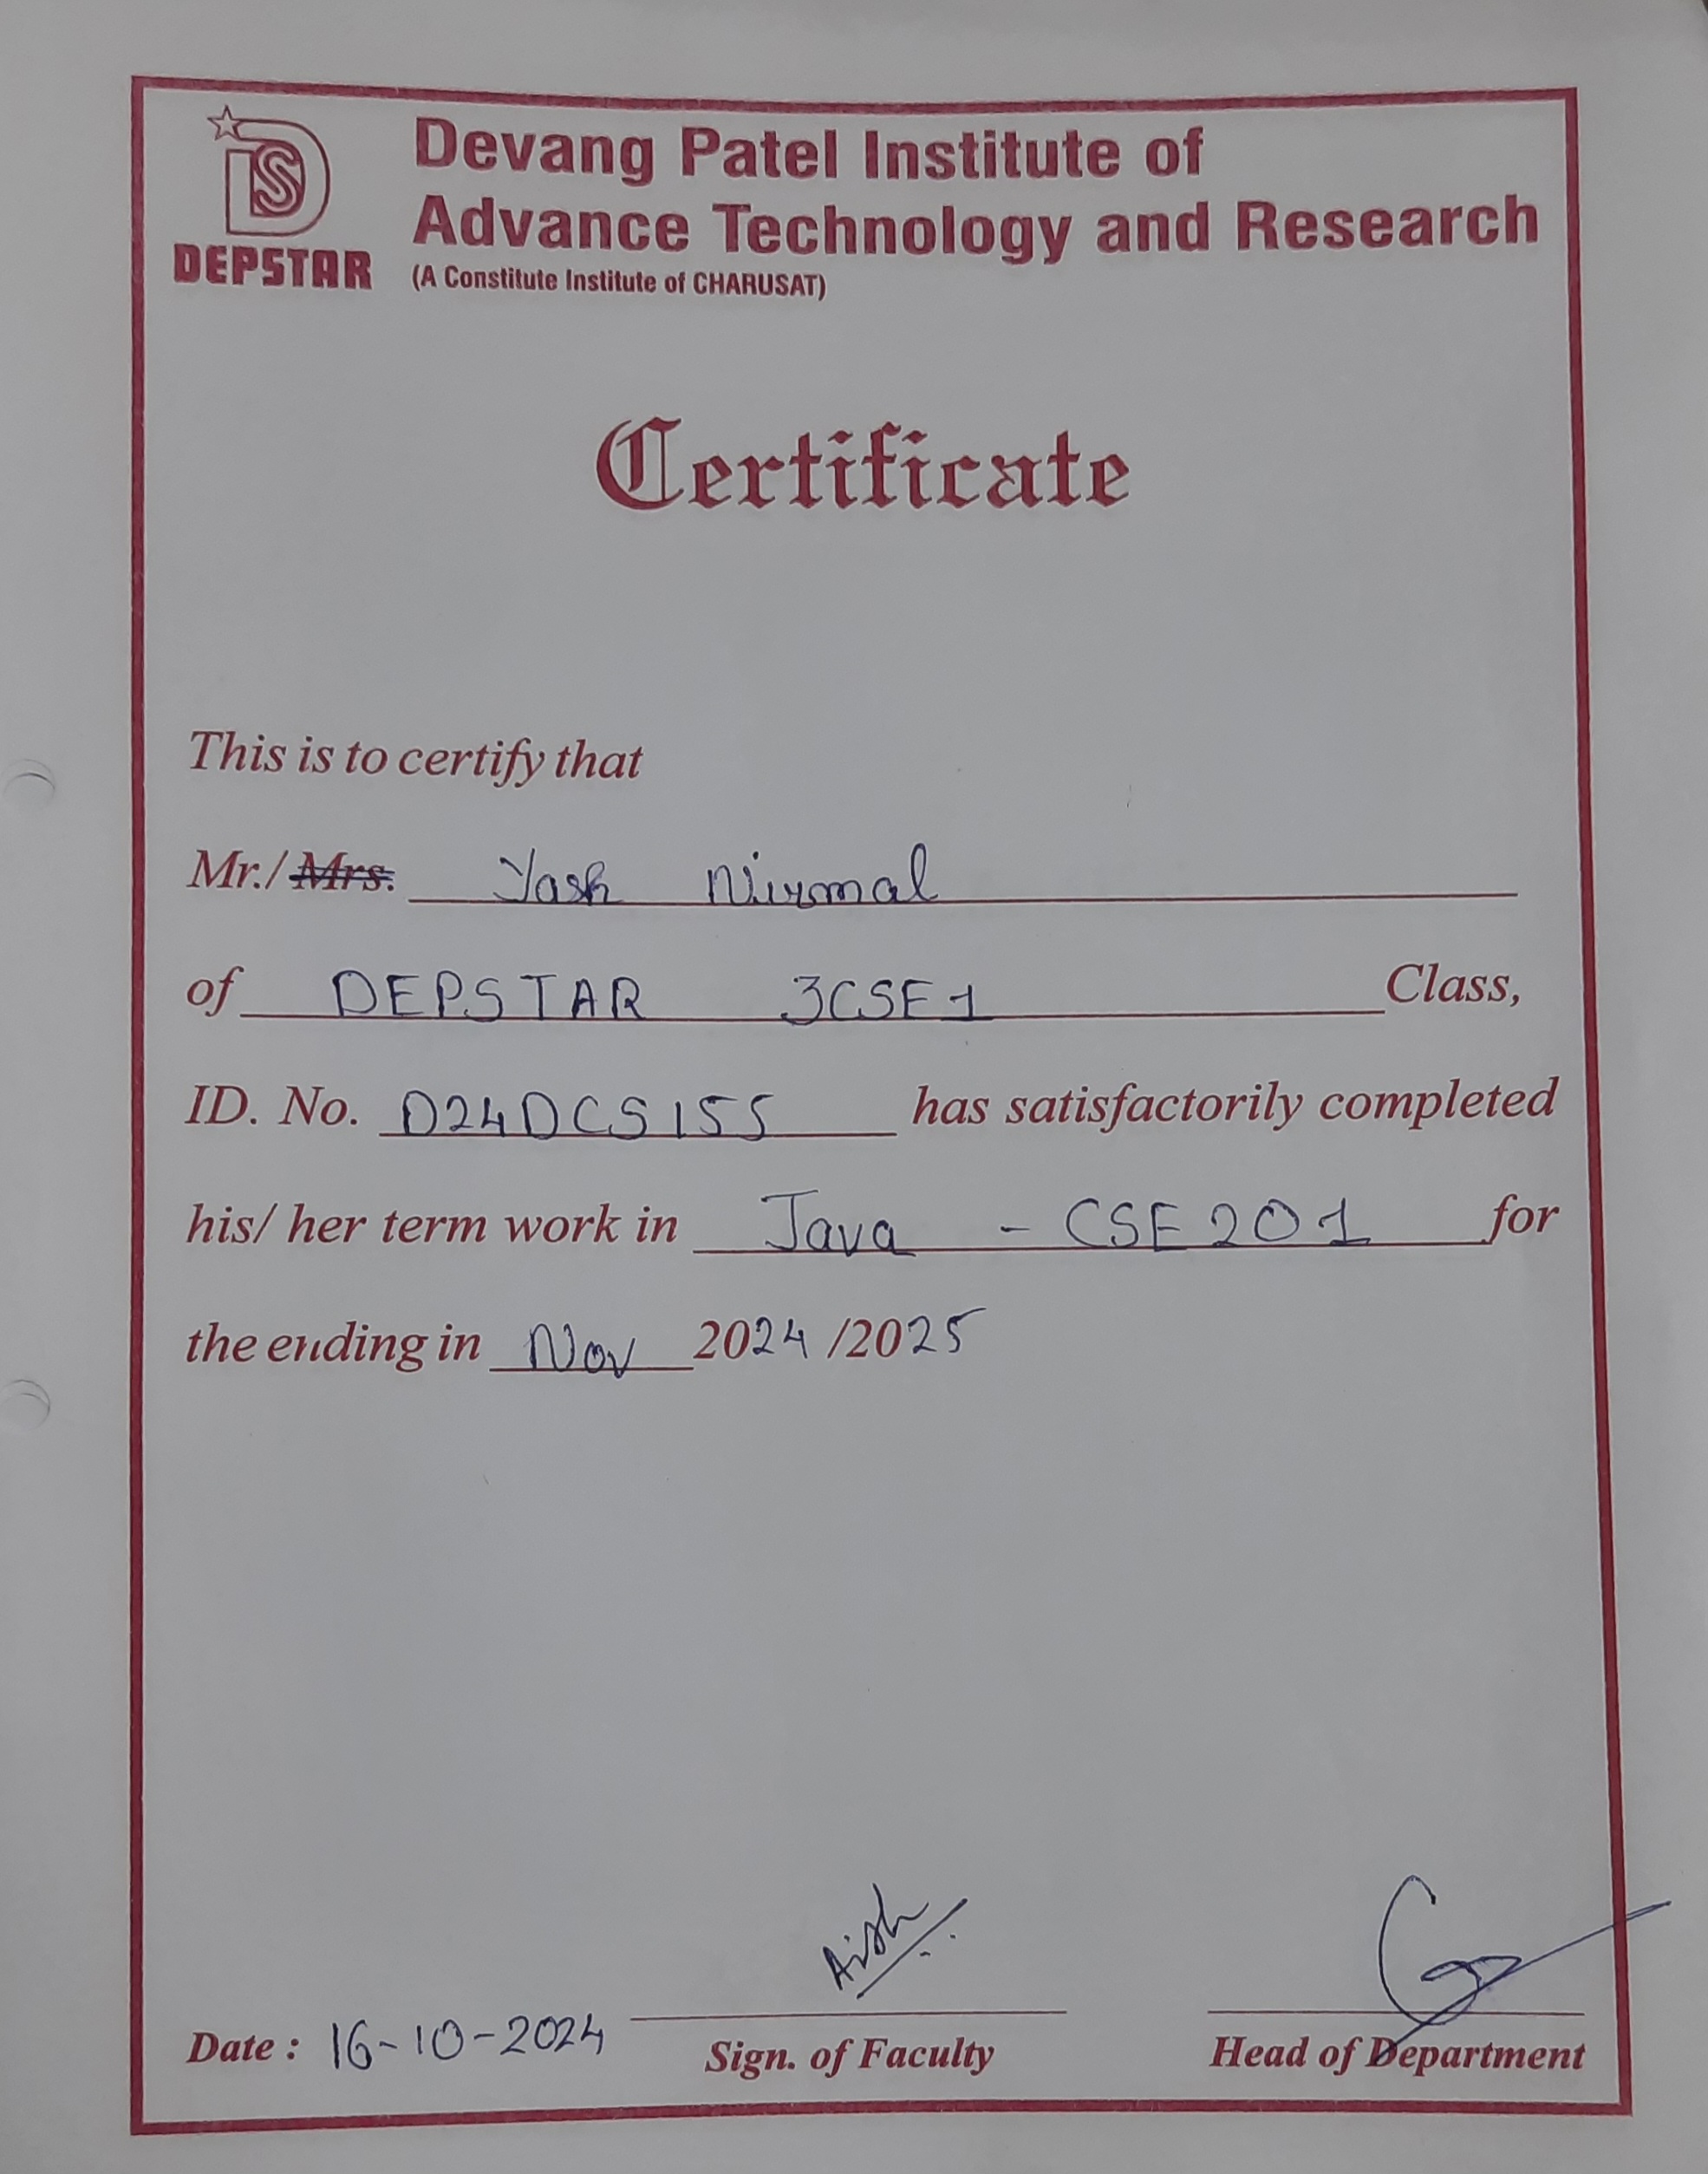 DEPSTAR
Devang Patel Institute of
Advance Technology and Research
(A Constitute Institute of CHARUSAT)
Certificate
This is to certify that
Mr./ Mrs. Yash Nirmal
of DEPSTAR 3CSE1 Class,
ID. No. D24DCS155 has satisfactorily completed
his/ her term work in Java - CSE201 for
the ending in Nov 2024 /2025
Date : 16-10-2024
Sign. of Faculty
Head of Department